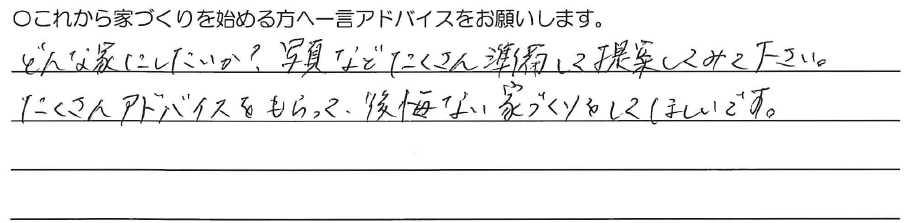 ○これから家づくりを始める方へ一言アドバイスをお願いします。
どんな家にしたいか？写真などたくさん準備して提案してみて下さい。
たくさんアドバイスをもらって、後悔ない家づくりをしてほしいです。